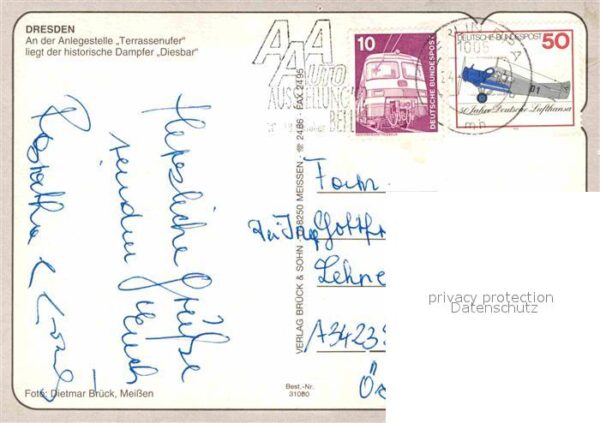 DRESDEN
An der Anlegestelle „Terrassenufer"
liegt der historische Dampfer „Diesbar"
AAA
AUTO
AUSSTELLUNG
BERLIN
10
DEUTSCHE BUNDESPOST
BERLIN
1000
DEUTSCHE BUNDESPOST
50
D1
50 Jahre Deutsche Lufthansa
Herzliche Grüße
senden Euch
VERLAG BRÜCK & SOHN · 8250 MEISSEN · ☎ 2486 · FAX 2495
Fam.
Gottf
Lehne
A3423
Ös
privacy protection
Datenschutz
Foto: Dietmar Brück, Meißen
Best.-Nr.
31080